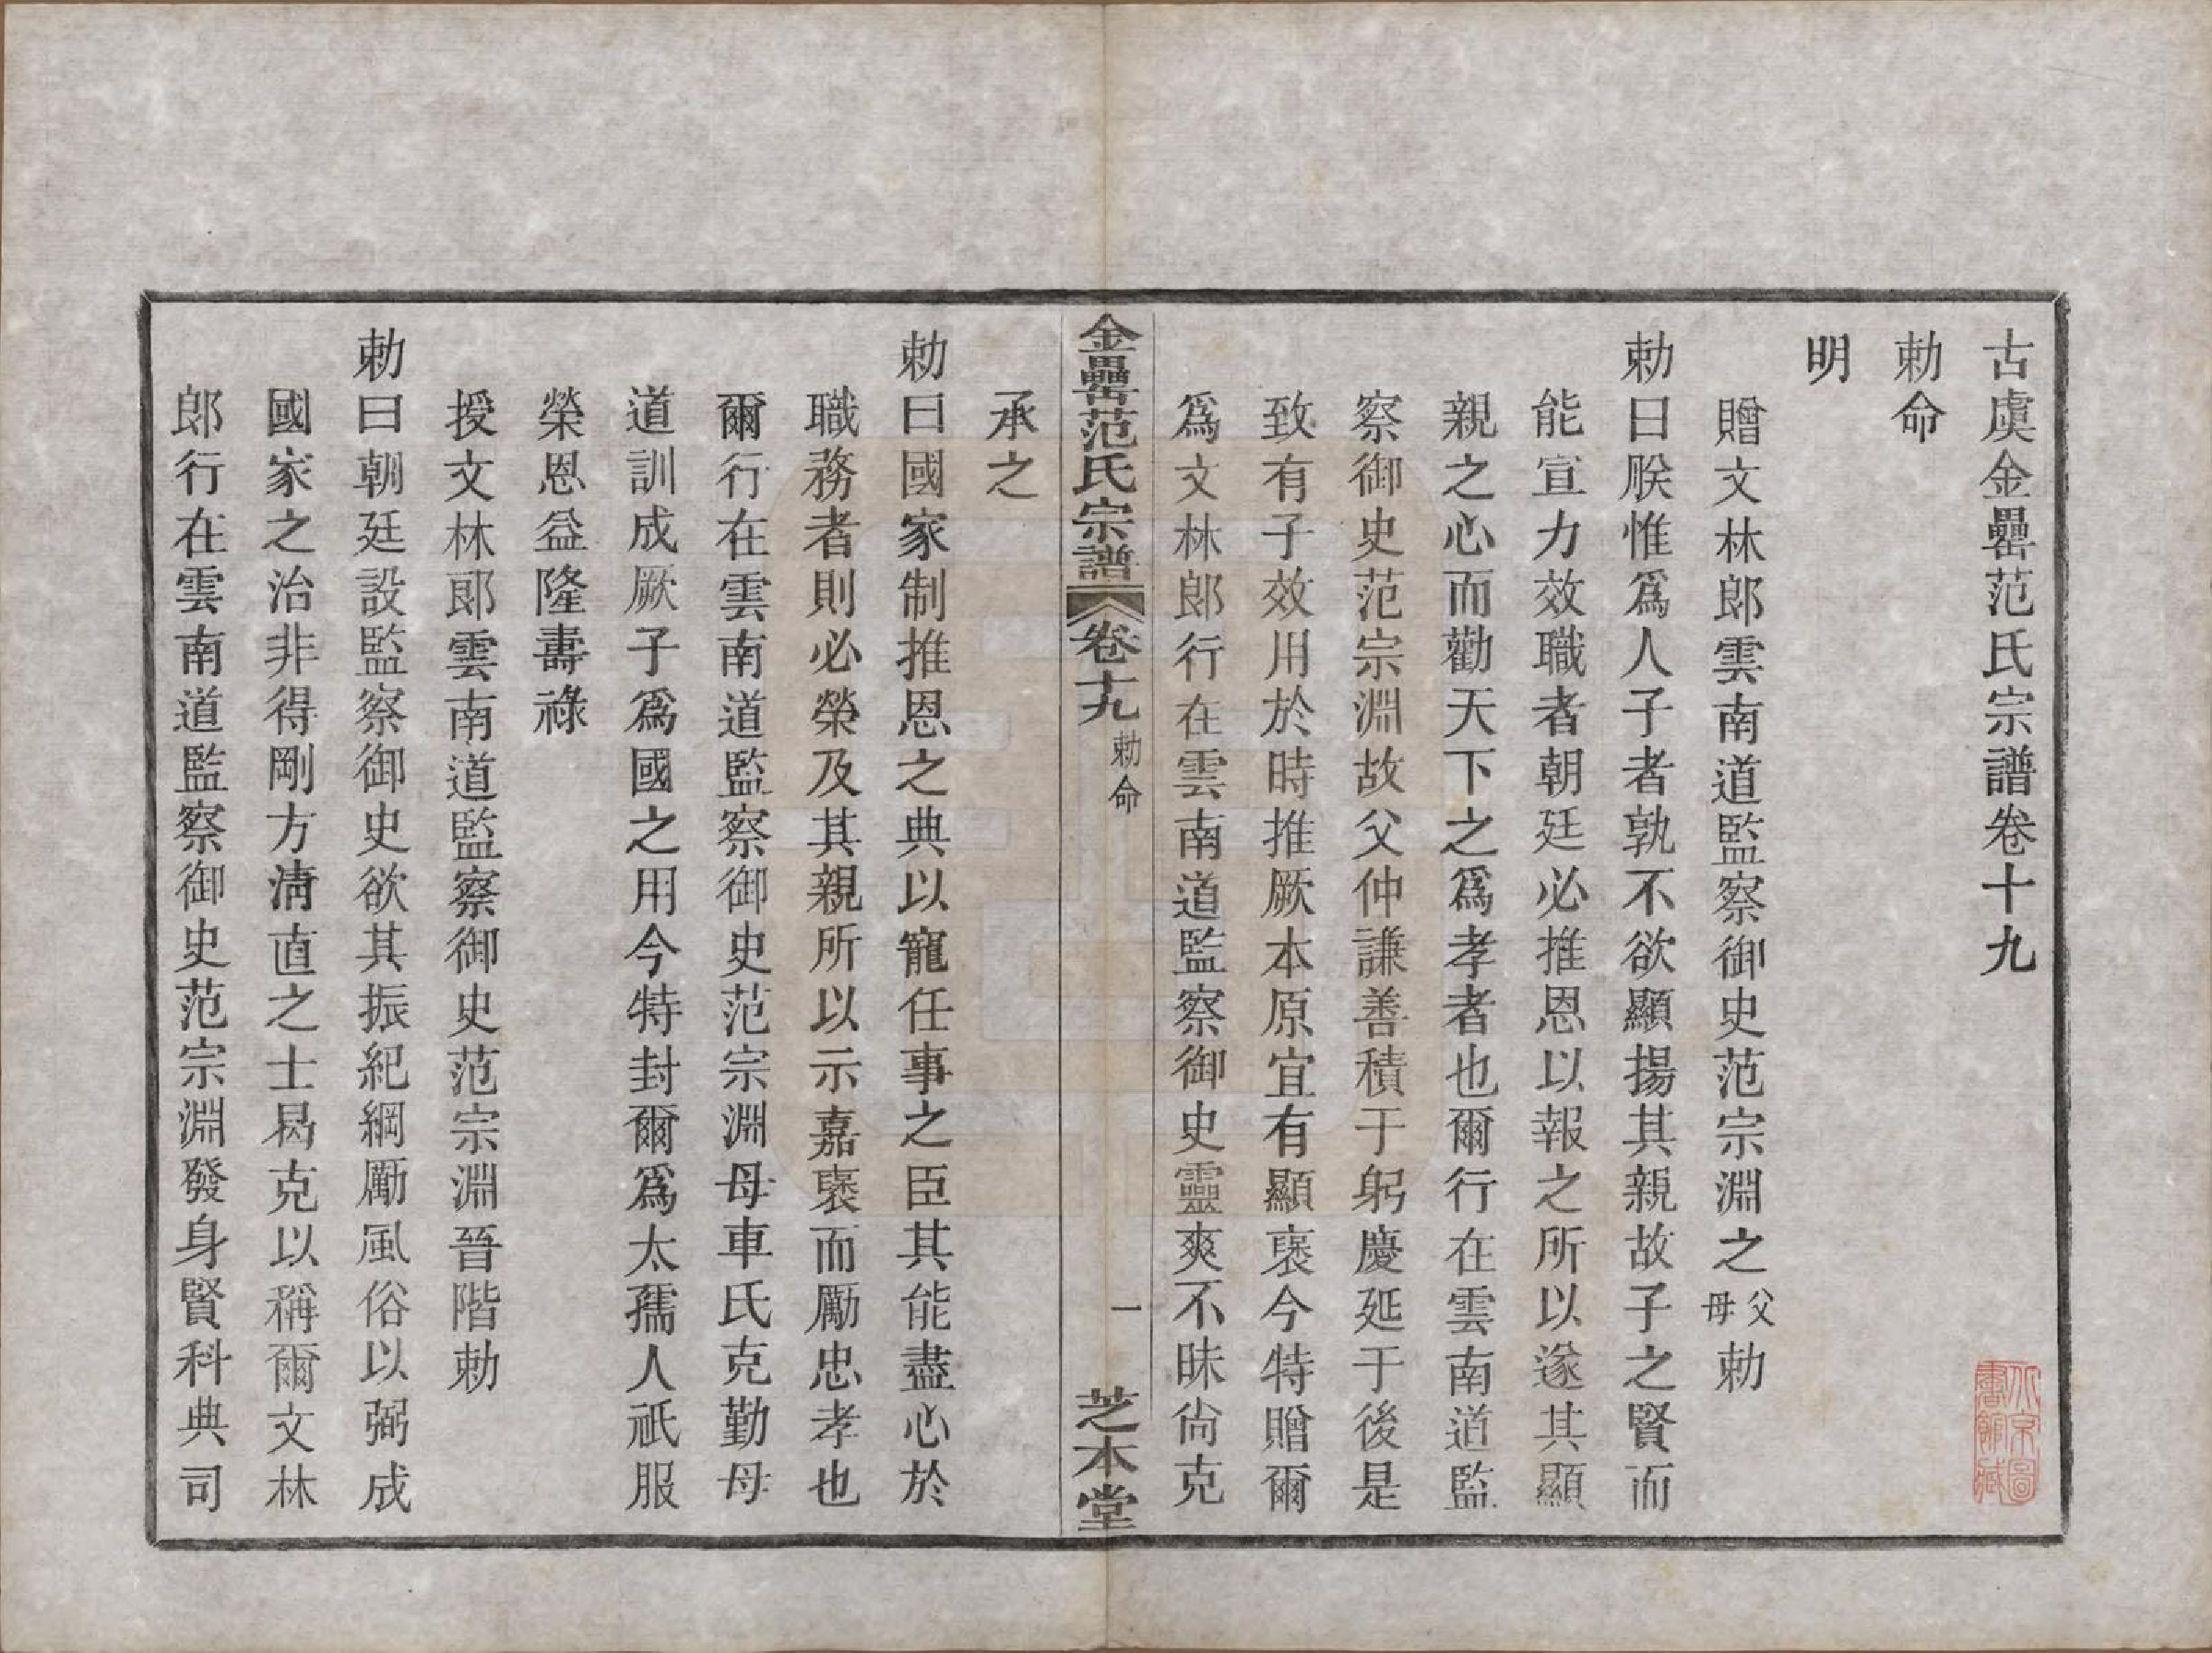 古虞金罍范氏宗譜卷十九
勅命
明
贈文林郎雲南道監察御史范宗淵之父母勅
勅曰朕惟爲人子者孰不欲顯揚其親故子之賢而
能宣力效職者朝廷必推恩以報之所以遂其顯
親之心而勸天下之爲孝者也爾行在雲南道監
察御史范宗淵故父仲謙善積于躬慶延于後是
致有子效用於時推厥本原宜有顯褒今特贈爾
爲文林郎行在雲南道監察御史靈爽不昧尙克
金罍范氏宗譜
卷十九
勅命
一
芝本堂
承之
勅曰國家制推恩之典以寵任事之臣其能盡心於
職務者則必榮及其親所以示嘉褒而勵忠孝也
爾行在雲南道監察御史范宗淵母車氏克勤母
道訓成厥子爲國之用今特封爾爲太孺人祇服
榮恩益隆壽祿
授文林郎雲南道監察御史范宗淵晉階勅
勅曰朝廷設監察御史欲其振紀綱勵風俗以弼成
國家之治非得剛方淸直之士曷克以稱爾文林
郎行在雲南道監察御史范宗淵發身賢科典司